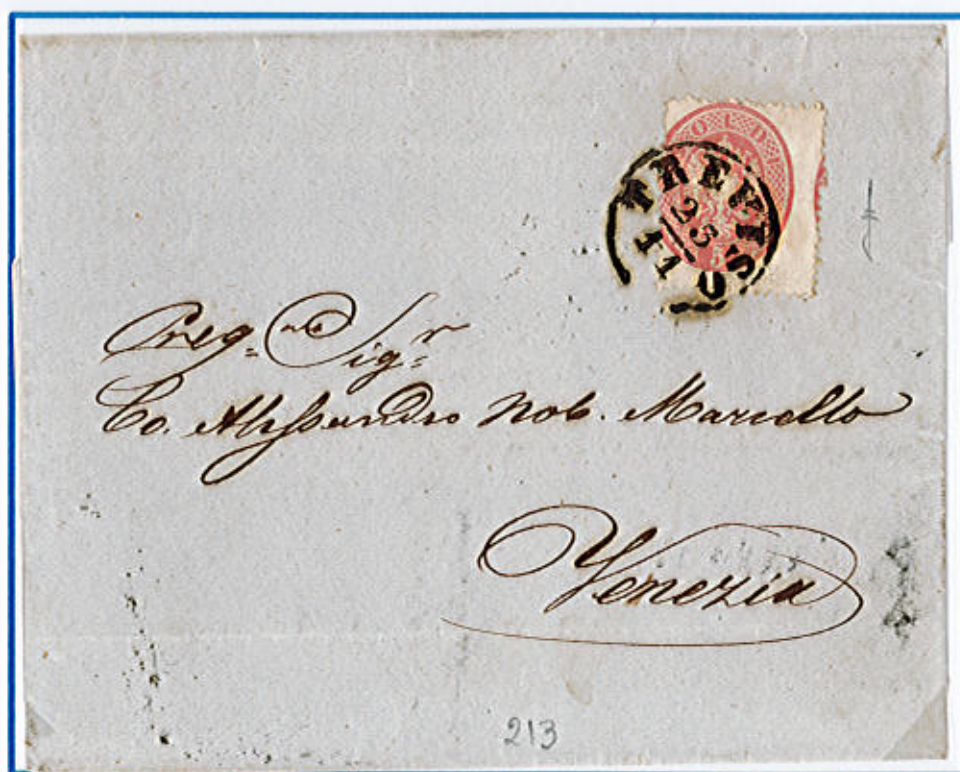 SOLDI
5
TREVISO
25
11
Preg.mo Sig.r
Co. Alessandro Nob. Marcello
Venezia
213